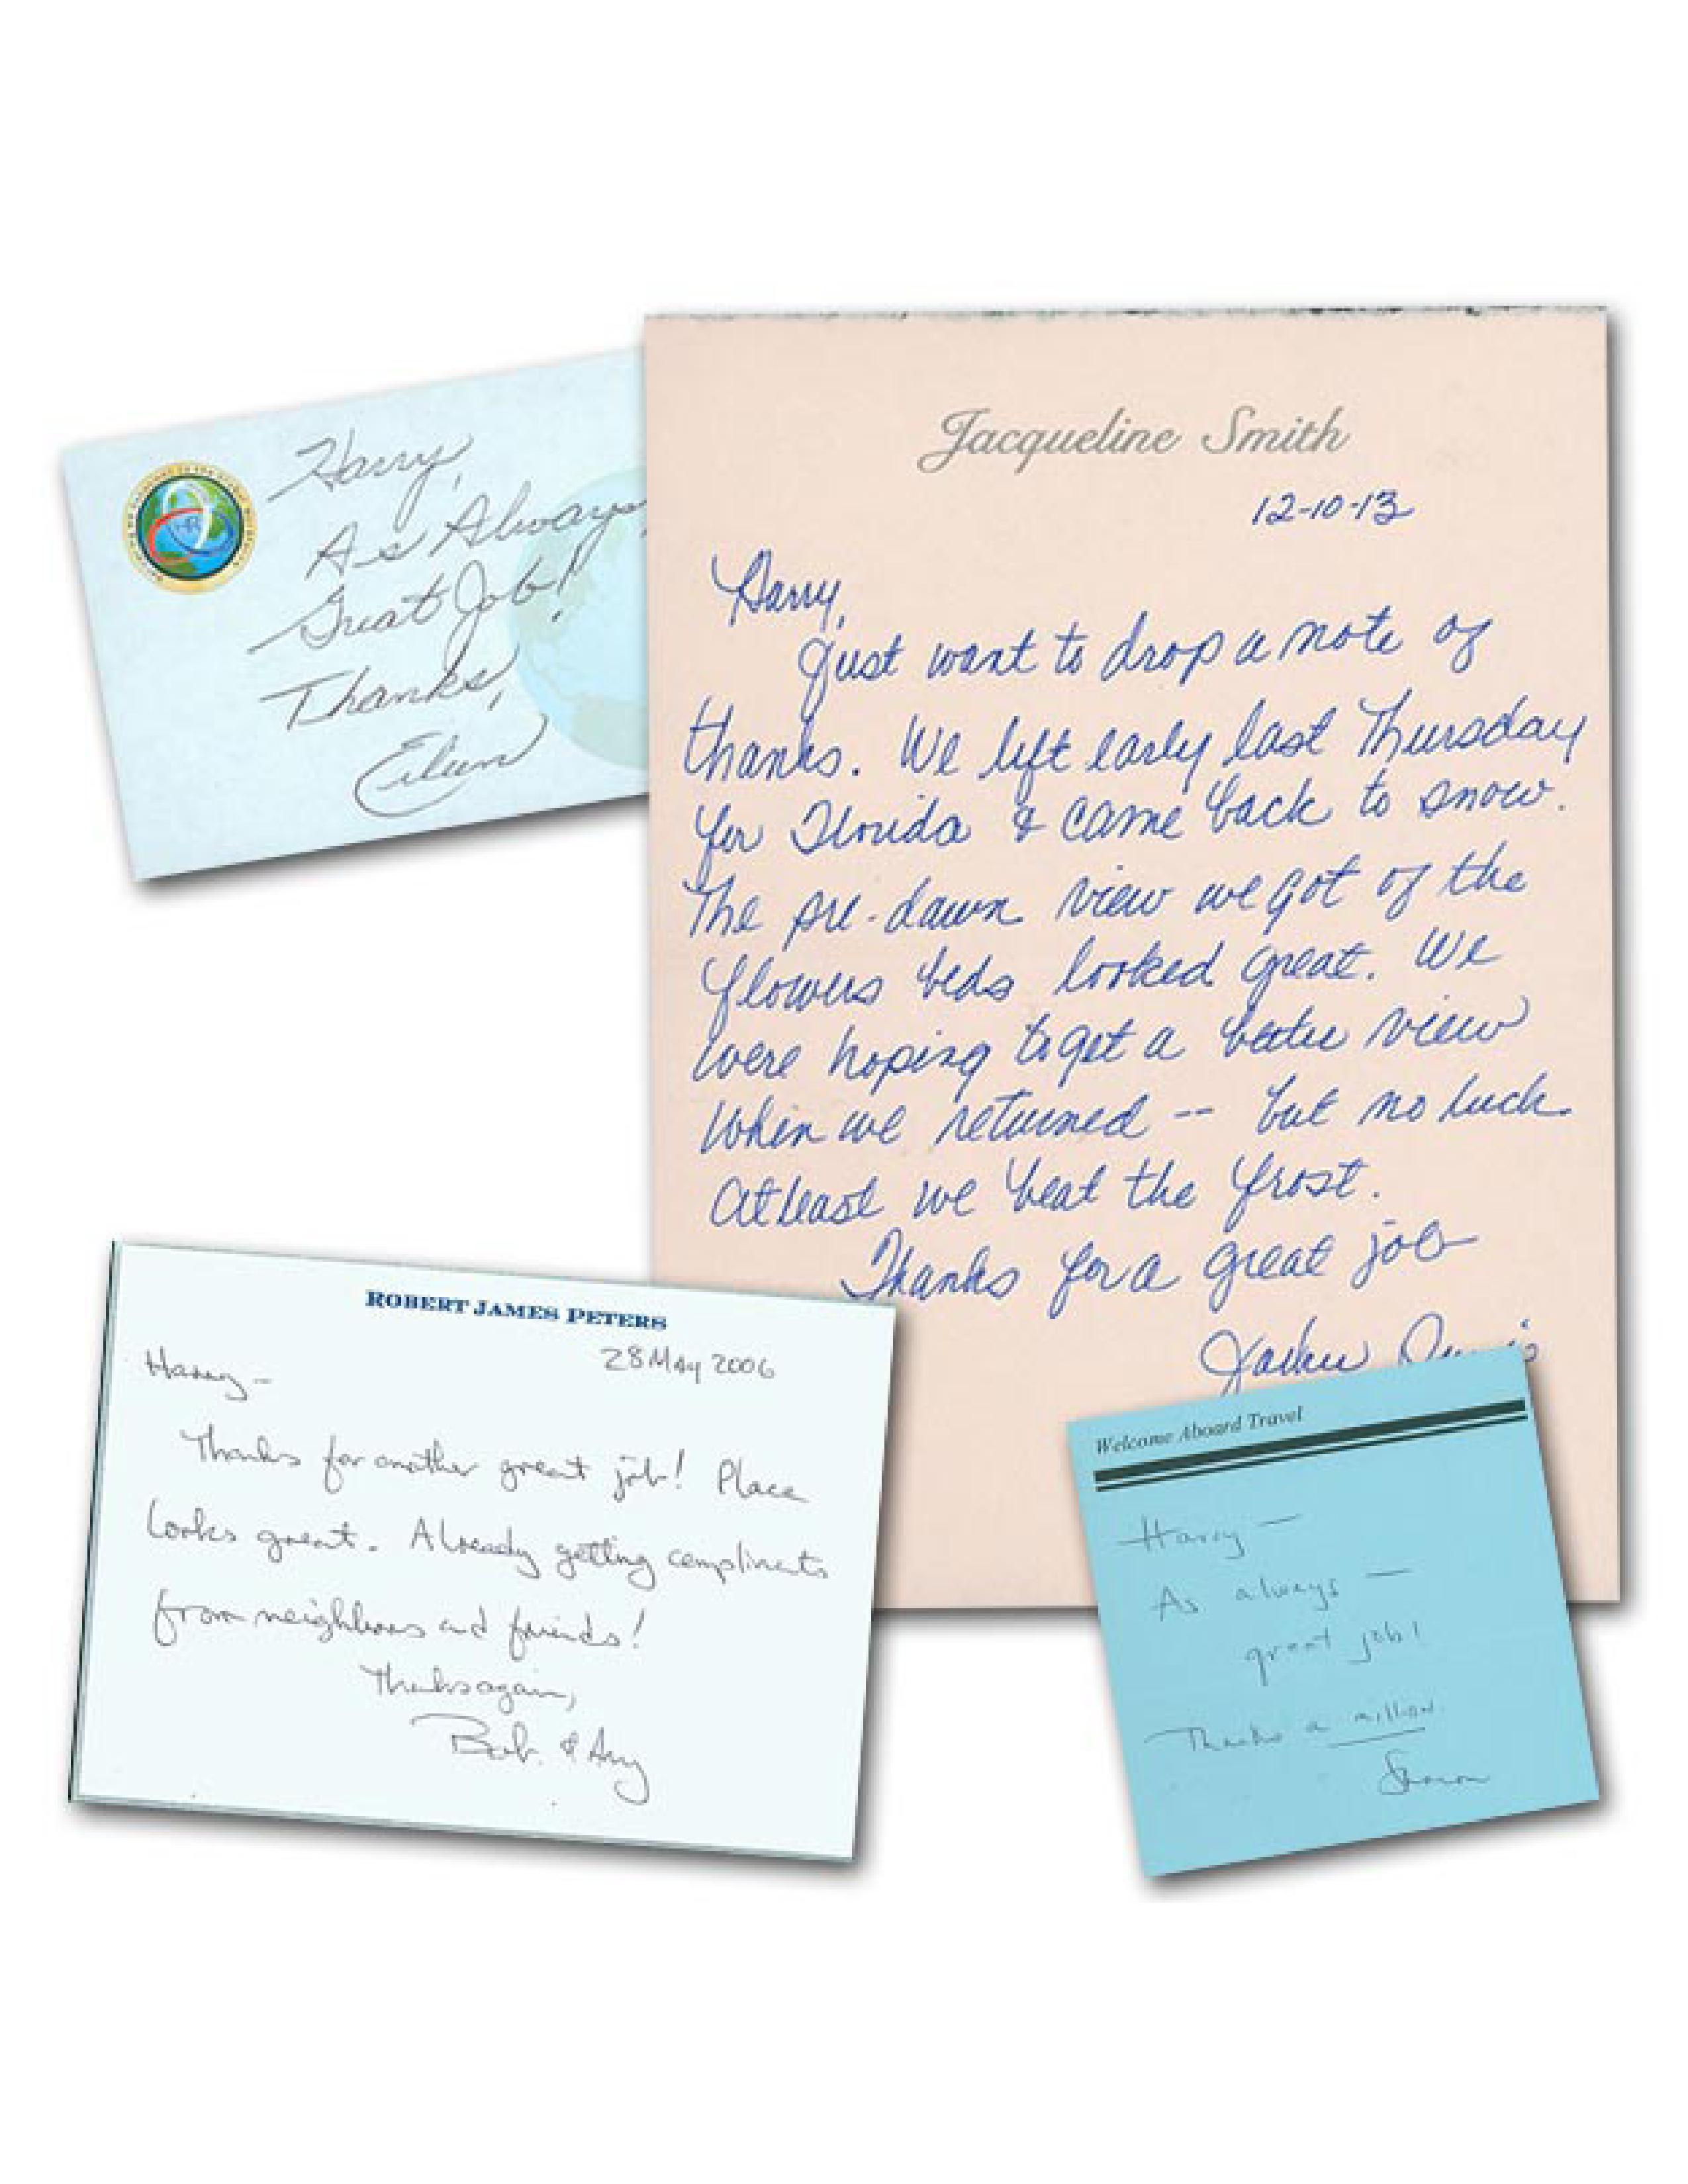 Harry,
As Always,
Great Job!
Thanks,
HR
Jacqueline Smith
12-10-13
Harry,
Just want to drop a note of
thanks. We left early last Thursday
for Florida & came back to snow.
The pre-dawn view we got of the
flowers beds looked great. We
were hoping to get a better view
when we returned -- but no luck.
At least we beat the frost.
Thanks for a great job
ROBERT JAMES PETERS
28 May 2006
Harry -
Thanks for another great job! Place
looks great. Already getting compliments
from neighbors and friends!
Thanks again,
Bob & Amy
Welcome Aboard Travel
Harry —
As always —
great job!
Thanks a million.
Sharon